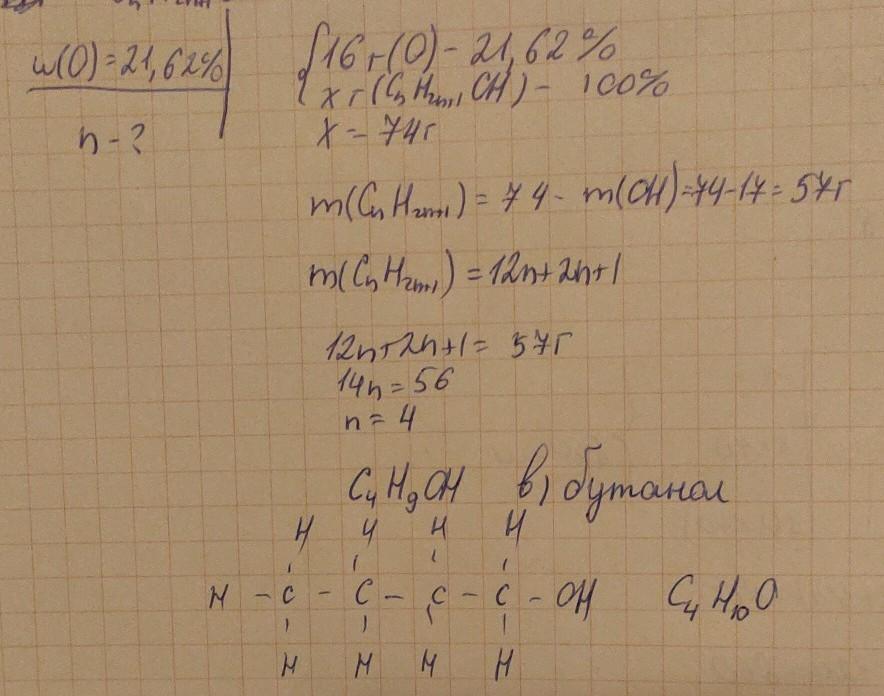 w(O) = 21,62%
n - ?
{16 г (O) - 21,62 %
x г (CnH2n+1 OH) - 100%
x = 74г
m(CnH2n+1) = 74 - m(OH) = 74-17 = 57г
m(CnH2n+1) = 12n+2n+1
12n+2n+1 = 57г
14n = 56
n = 4
C4H9OH в) бутанол
H H H H
H - C - C - C - C - OH C4H10O
H H H H